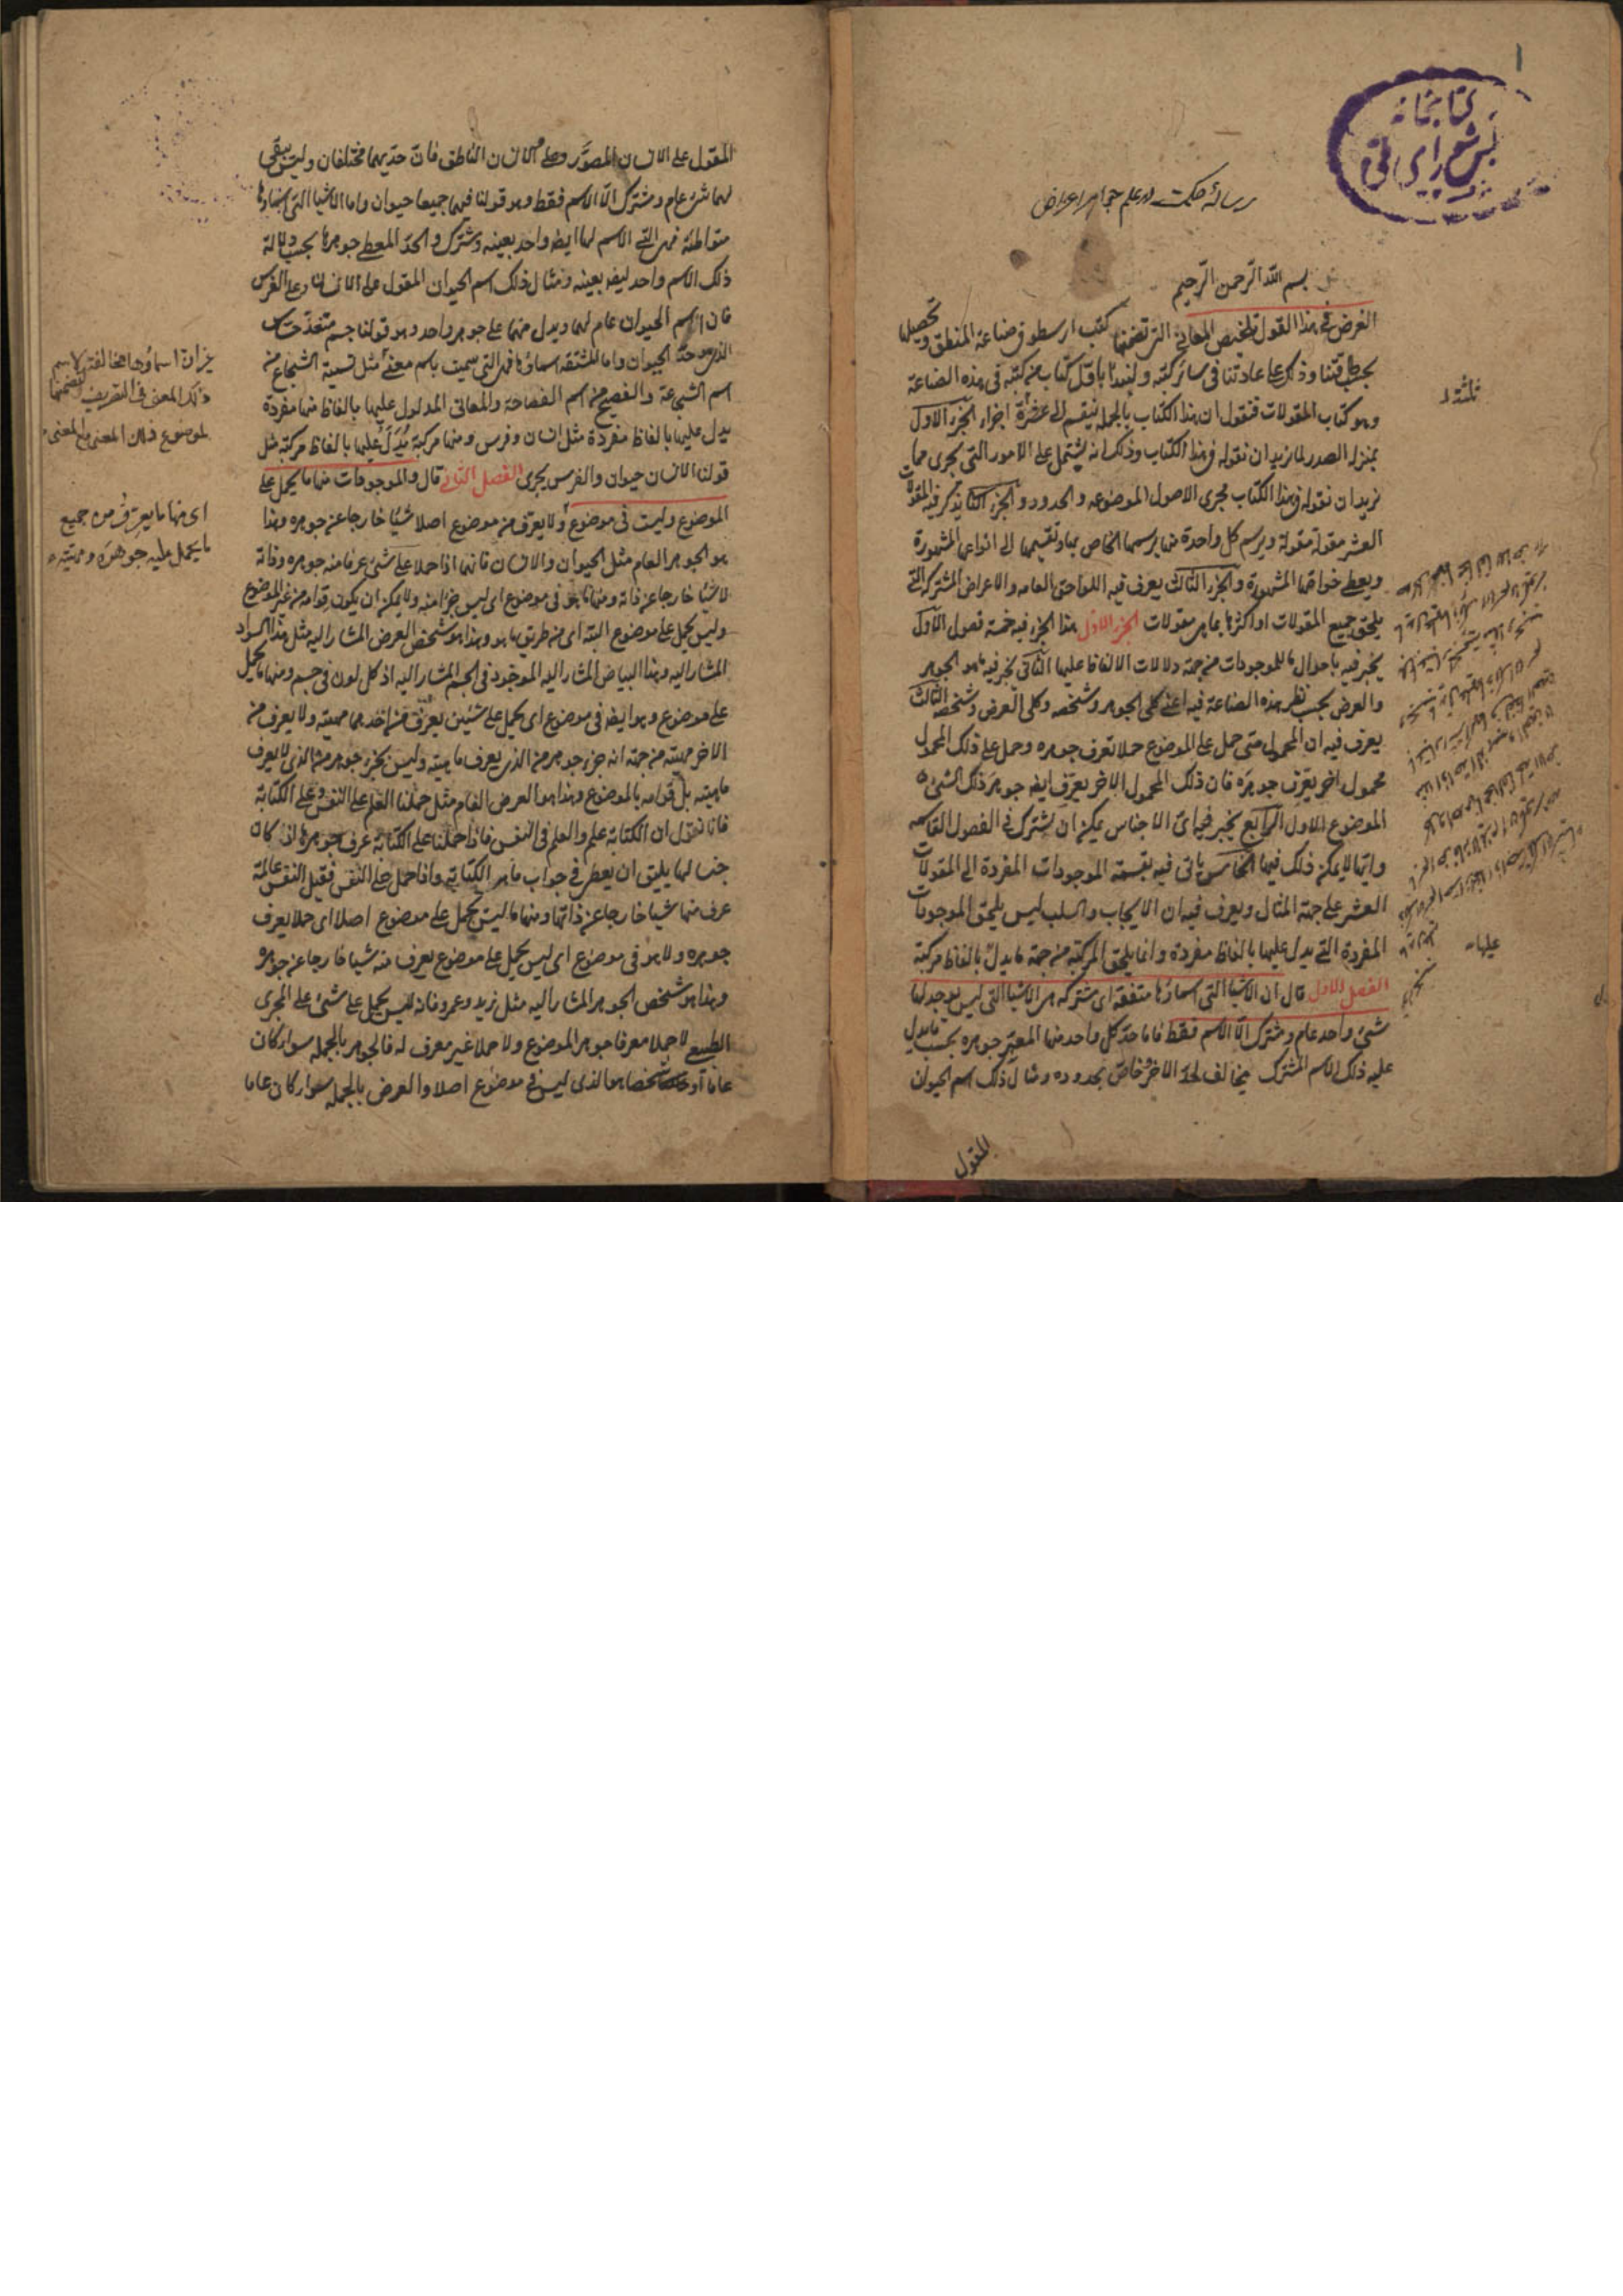 رسالهٔ حکمت در علم جواهر اعراض
بسم الله الرحمن الرحیم
الغرض فی هذا القول تلخیص المعانی التی تضمنها کتب ارسطو فی صناعة المنطق وتحصیلها
بحسب طاقتنا وذلک علی عادتنا فی سائر کتبه ولنبدأ باول کتاب من کتبه فی هذه الصناعة
وهو کتاب المقولات فنقول ان هذا الکتاب بالجملة ینقسم الی اجزاء الجزء الاول
بمنزلة الصدر لما نرید ان نقوله فی هذا الکتاب وذلک انه یشتمل علی الامور التی تجری مما
نرید ان نقوله فی هذا الکتاب مجری الاصول الموضوعه والحدود والجزء الثانی یذکر فیه المقولات
العشر مقولة مقولة ویرسم کل واحدة منها برسمها الخاص بها وتقسیمها الی انواعها المشهورة
ویعطی خواصها المشهورة والجزء الثالث یعرف فیه اللواحق العامه والاعراض المشترکه التی
یلحق جمیع المقولات او اکثرها بما هی مقولات الجزء الاول هذا الجزء فیه خمسة فصول الاول
یخبر فیه باحوال ما للموجودات من جهة دلالات الالفاظ علیها الثانی یخبر فیه ما هو الجوهر
والعرض بحسب نظر هذه الصناعة فیه اعنی کلی الجوهر وشخصه وکلی العرض وشخصه الثالث
یعرف فیه ان المحمول متی حمل علی الموضوع حملا تعرف جوهره وحمل علی ذلک المحمول
محمول اخر یعرف جوهره فان ذلک المحمول الاخر یعرف ایضه جوهر ذلک الشیء
الموضوع الاول الرابع یخبر فیه ای الاجناس یمکن ان یشترک فی الفصول القاسمه
وایها لا یمکن ذلک فیها الخامس یاتی فیه بقسمة الموجودات المفردة الی المقولات
العشر علی جهة المثال ویعرف فیه ان الایجاب والسلب لیس یلحق الموجودات
المفردة التی یدل علیها بالفاظ مفردة وانما یلحق المرکبة من جهة ما یدل بالفاظ مرکبة
الفصل الاول قال ان الاشیا التی اسماؤها متفقة ای مشترکه هی الاشیا التی لیس یوجد لها
شیء واحد عام ومشترک الا الاسم فقط فاما حد کل واحد منها المعبر جوهره بحسب ما یدل
علیه ذلک الاسم المشترک مخالف لحد الاخر وخاص بحدوده ومثال ذلک اسم الحیوان
المقول
علیها
المقول علی الانسان المصور وعلی الانسان الناطق فان حدیهما مختلفان ولیس یبقی
لهما شیء عام ومشترک الا الاسم فقط وهو قولنا فیهما جمیعا حیوان واما الاشیا التی اسماؤها
متواطئة فهی التی الاسم لها ایضه واحد بعینه ومشترک والحد المعطی جوهرها بحسب دلالة
ذلک الاسم واحد ایضه بعینه ومثال ذلک اسم الحیوان المقول علی الانسان وعلی الفرس
فان اسم الحیوان عام لهما ویدل منهما علی جوهر واحد وهو قولنا جسم متغذ حساس
الذی هو حد الحیوان واما المشتقه اسماؤها فهی التی سمیت باسم معنی مثل تسمیة الشجاع من
اسم الشجاعة والفصیح من اسم الفصاحة والمعانی المدلول علیها بالفاظ منها مفردة
یدل علیها بالفاظ مفردة مثل انسان وفرس ومنها مرکبة یدل علیها بالفاظ مرکبة مثل
قولنا الانسان حیوان والفرس یجری الفصل الثانی قال والموجودات منها ما یحمل علی
الموضوع ولیست فی موضوع ولا یعرف من موضوع اصلا شیئا خارجا عن جوهره وهذا
هو الجوهر العام مثل الحیوان والانسان فانهما اذا حملا علی شیء عرفا منه جوهره وذاته
لا شیئا خارجا عن ذاته ومنها ما هو فی موضوع ای لیس جزأ منه ولا یمکن ان یکون قوامه من غیر الموضوع
ولیس یحمل علی موضوع البته ای من طریق ما هو وهذا هو شخص العرض المشار الیه مثل هذا السواد
المشار الیه وهذا البیاض المشار الیه الموجود فی الجسم المشار الیه اذ کل لون فی جسم ومنها ما یحمل
علی موضوع وهو ایضه فی موضوع ای یحمل علی شیئین یعرف من احدهما مهیته ولا یعرف من
الاخر مهیته من جهة انه جزء جوهر من الذی یعرف ماهیته ولیس بجزء جوهر من الذی لا یعرف
ماهیته بل قوامه بالموضوع وهذا هو العرض العام مثل حملنا العلم علی النفس وعلی الکتابة
فانا نقول ان الکتابة علم والعلم فی النفس فاذا حملنا علی الکتابة عرف جوهرها اذا کان
جنسا لها یلیق ان یعطی فی جواب ما هی الکتابة واذا حمل علی النفس فقیل النفس عالمة
عرف منها شیئا خارجا عن ذاتها ومنها ما لیس یحمل علی موضوع اصلا ای حملا یعرف
جوهره ولا هو فی موضوع ای لیس یحمل علی موضوع یعرف منه شیئا خارجا عن جوهره
وهذا هو شخص الجوهر المشار الیه مثل زید وعمرو فانه لیس یحمل علی شیء علی المجری
الطبیعی لا حملا معرفا جوهر الموضوع ولا حملا غیر معرف له فالجوهر بالجمله سواء کان
عاما او شخصا هو الذی لیس فی موضوع اصلا والعرض بالجملة سواء کان عاما
غیر ان اسماؤها مخالفة لاسم
ذلک المعنی فی التصریف لتضمنها
لموضوع ذلک المعنی مع المعنی
ای منها ما یعرف من جمیع
ما یحمل علیه جوهره ومهیته